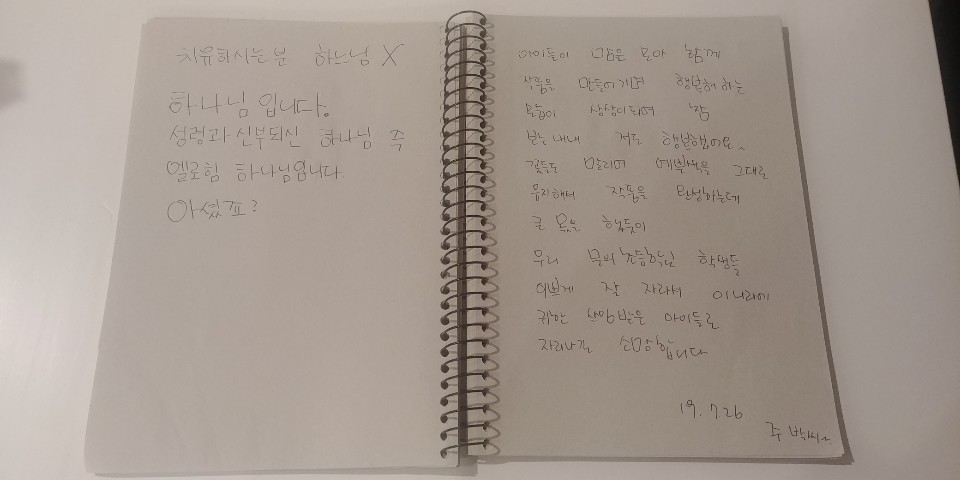 치유하시는 분 하느님 X
하나님 입니다.
성령과 신부되신 하나님 즉
엘로힘 하나님입니다.
아셨죠?
아이들이 마음을 모아 함께
작품을 만들어가며 행복해 하는
모습이 상상이 되며 참
보는내내 저도 행복했어요~
꽃들도 말리어 예쁜색을 그대로
유리해서 작품을 완성하는데
큰 몫을 했듯이
우리 초등학교 학생들
이쁘게 잘 자라서 이나라에
귀한 사람받은 아이들로
자라나길 소망합니다
19. 7. 26